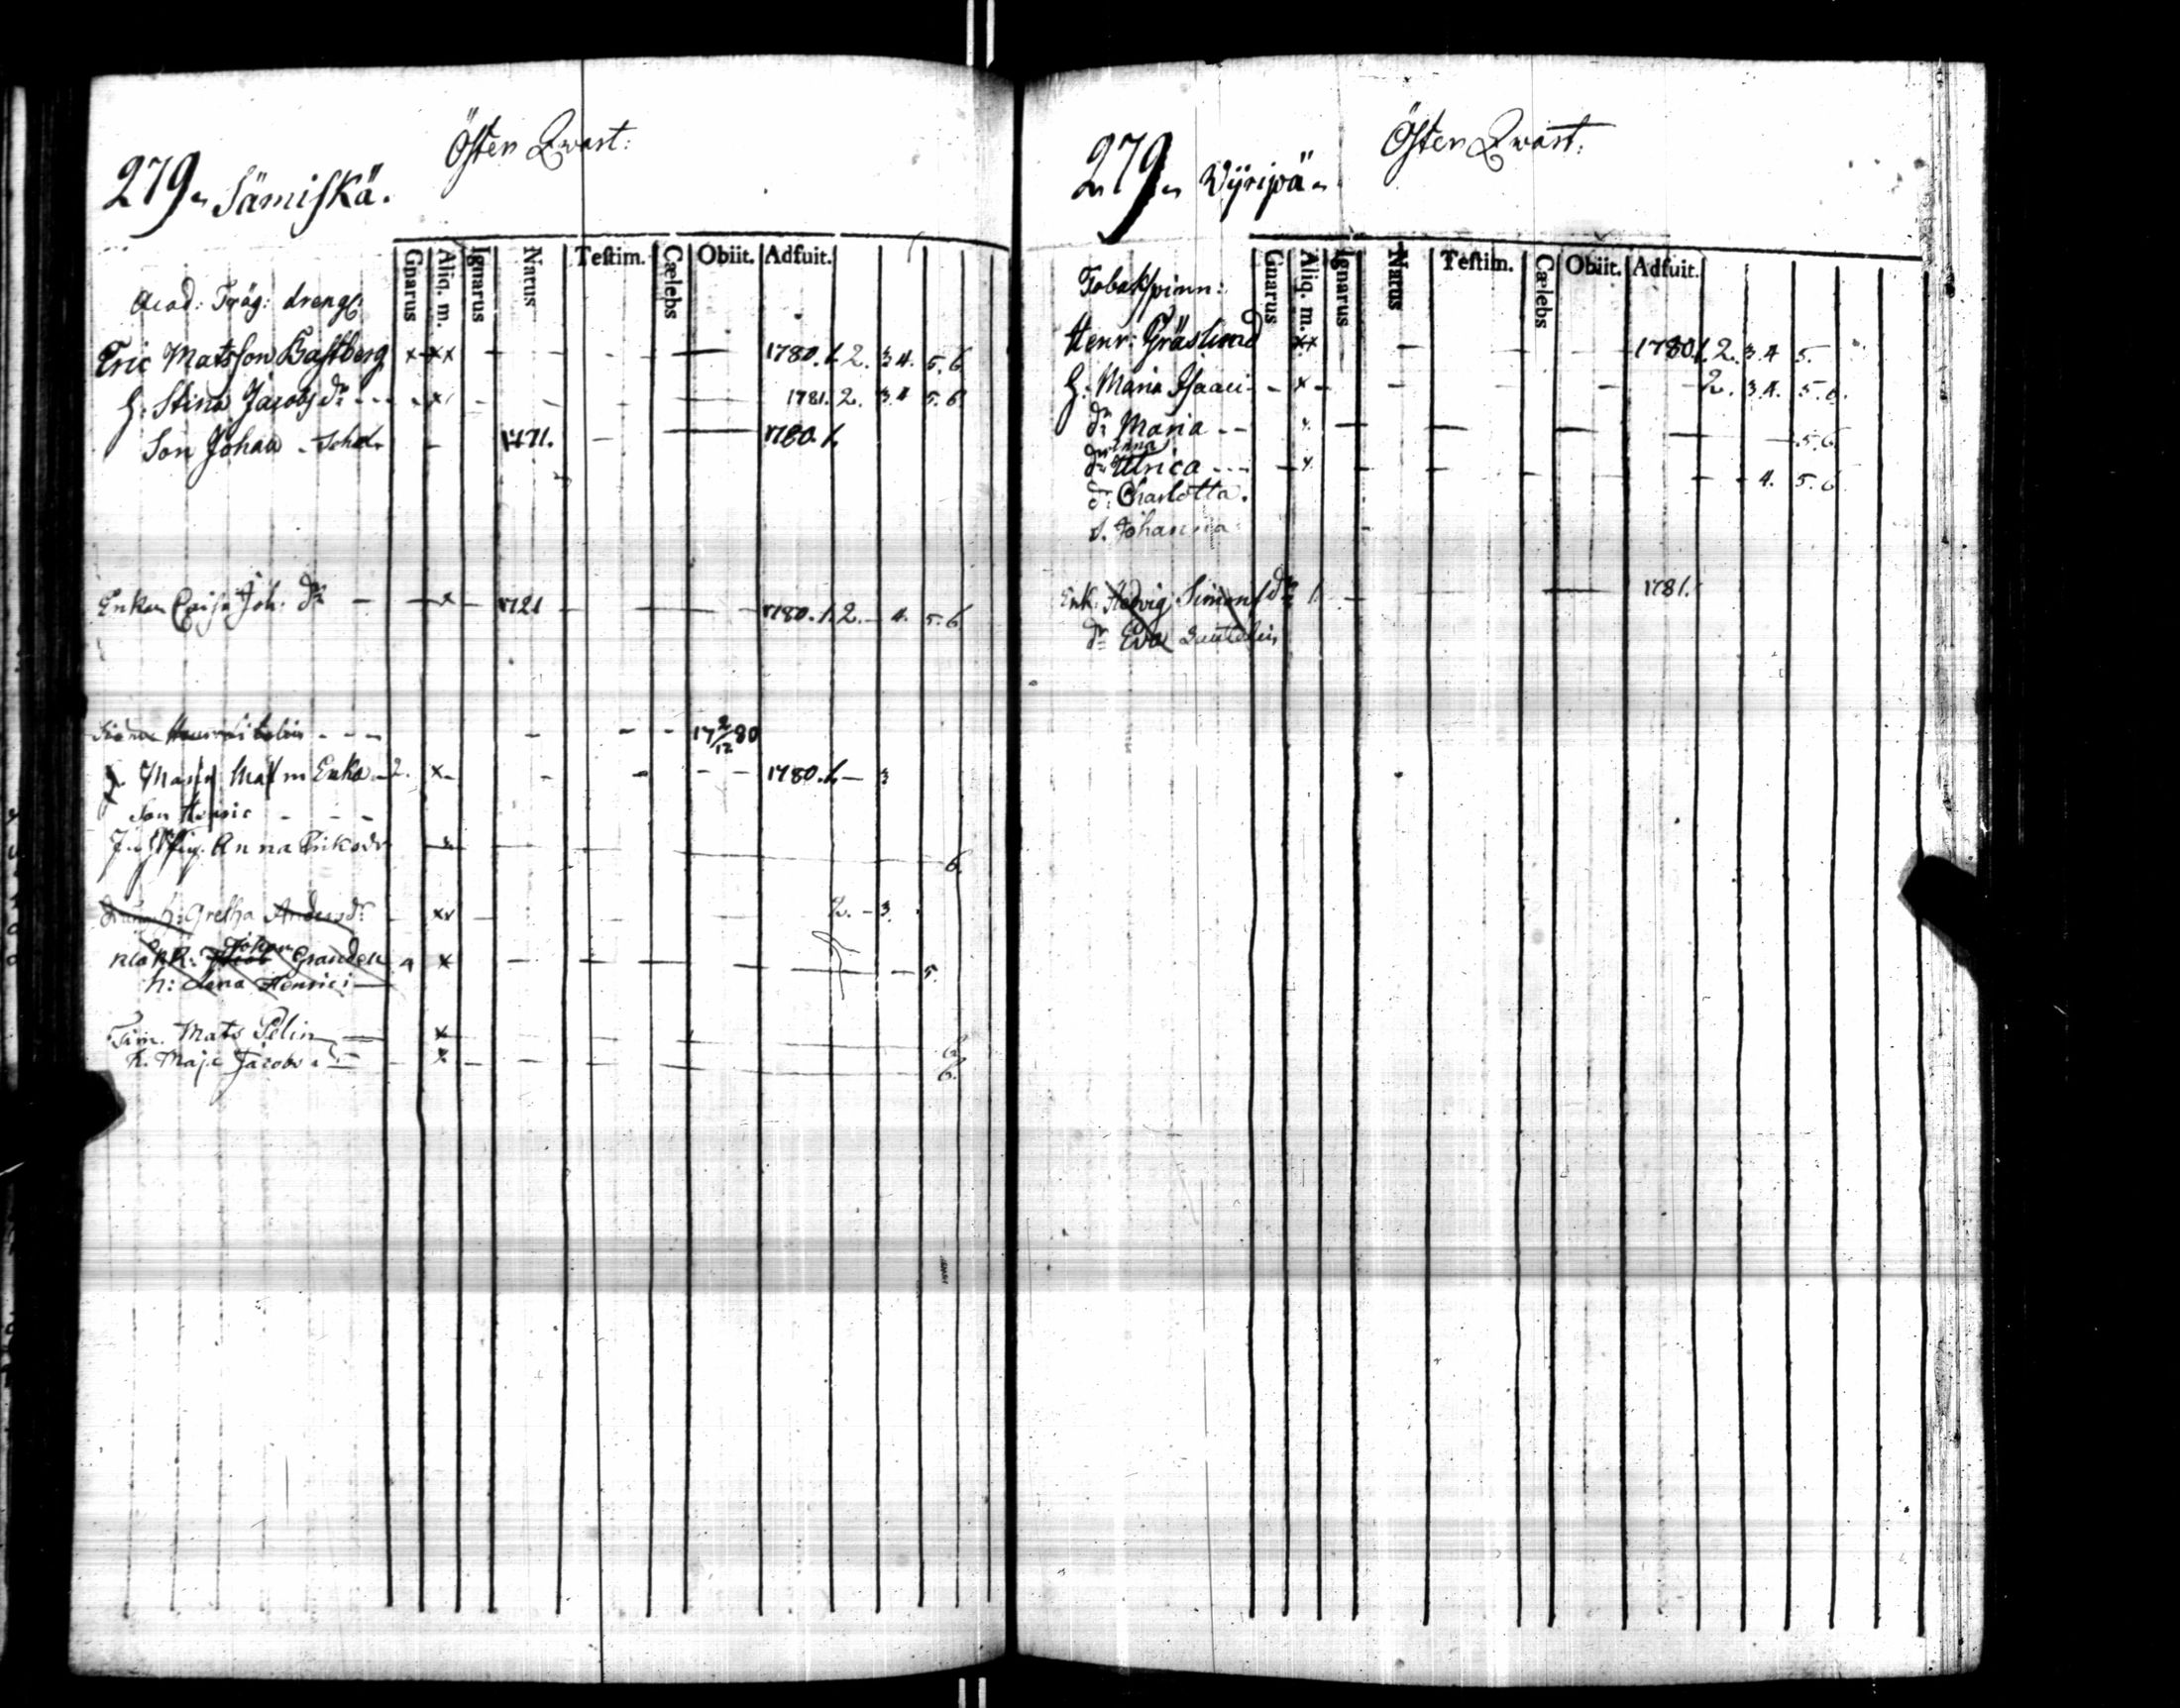 Östen Qwart:
279. Sämiskä.
Gnarus Aliq. m. Ignarus Natus Testim. Cælebs Obiit. Adfuit.
Acad: Träg: dreng
Eric Matsson Bastberg x xxx - - - - 1780. 1. 2. 3 4. 5. 6
H: Stina Jacobs dr - - - x - - - 1781. 2. 3. 4 5. 6
Son Johan - - 1771. - 1780. 1.
Enkan Caisa Joh: dr - - x - 1721 - - - 1780. 1. 2. - 4. 5. 6
- - - - - - 17 2/12 80
Maria Enka - 2. x - - - - - 1780. 1. - 3
Son Henric - - -
Anna Eriksdr 6.
h: Gretha Andersdr xx - - - 2. - 3.
Johan Granden x - - - - 5.
h: Lena Henrici
Mats Pelin x - - 6.
h. Maja Jacobs dr - x - - 6.
Östen Qwart:
279. Wÿripä.
Gnarus Aliq. m. Ignarus Natus Testim. Cælebs Obiit. Adfuit.
Tobakspinn:
Henr: Gräslund xx - - - 1780. 1. 2. 3. 4 5.
H: Maria Isaaci - x - - - - 2. 3. 4. 5. 6.
dr Maria - - x - - - - - 5. 6
Anna
dr Ulrica - - - x - - - - 4. 5. 6
d: Charlotta.
d. Johanna
Enk: Hedvig Simons dr 1. - - 1781.
dr Eva